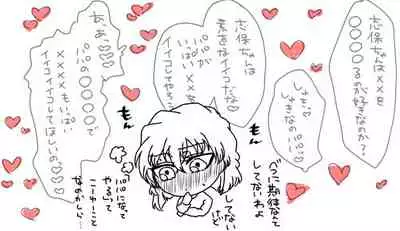 志保ちゃんは××を
○○○○
るのが好きなのか?
しゅき♡
しゅきなのパパ♡
志保ちゃんは
素直なイイコだな♡
パパが
いっぱい××を
イイコイイコしてやろう
あ、あ、♡♡♡
パパの○○○○で
××××もいっぱい
イイコイイコしてほしいの♡♡♡
べつに期待なんて
してないわよ
してない
けど
もん
もん
パパになって
やるって
こーゆーこと
なのかしら…